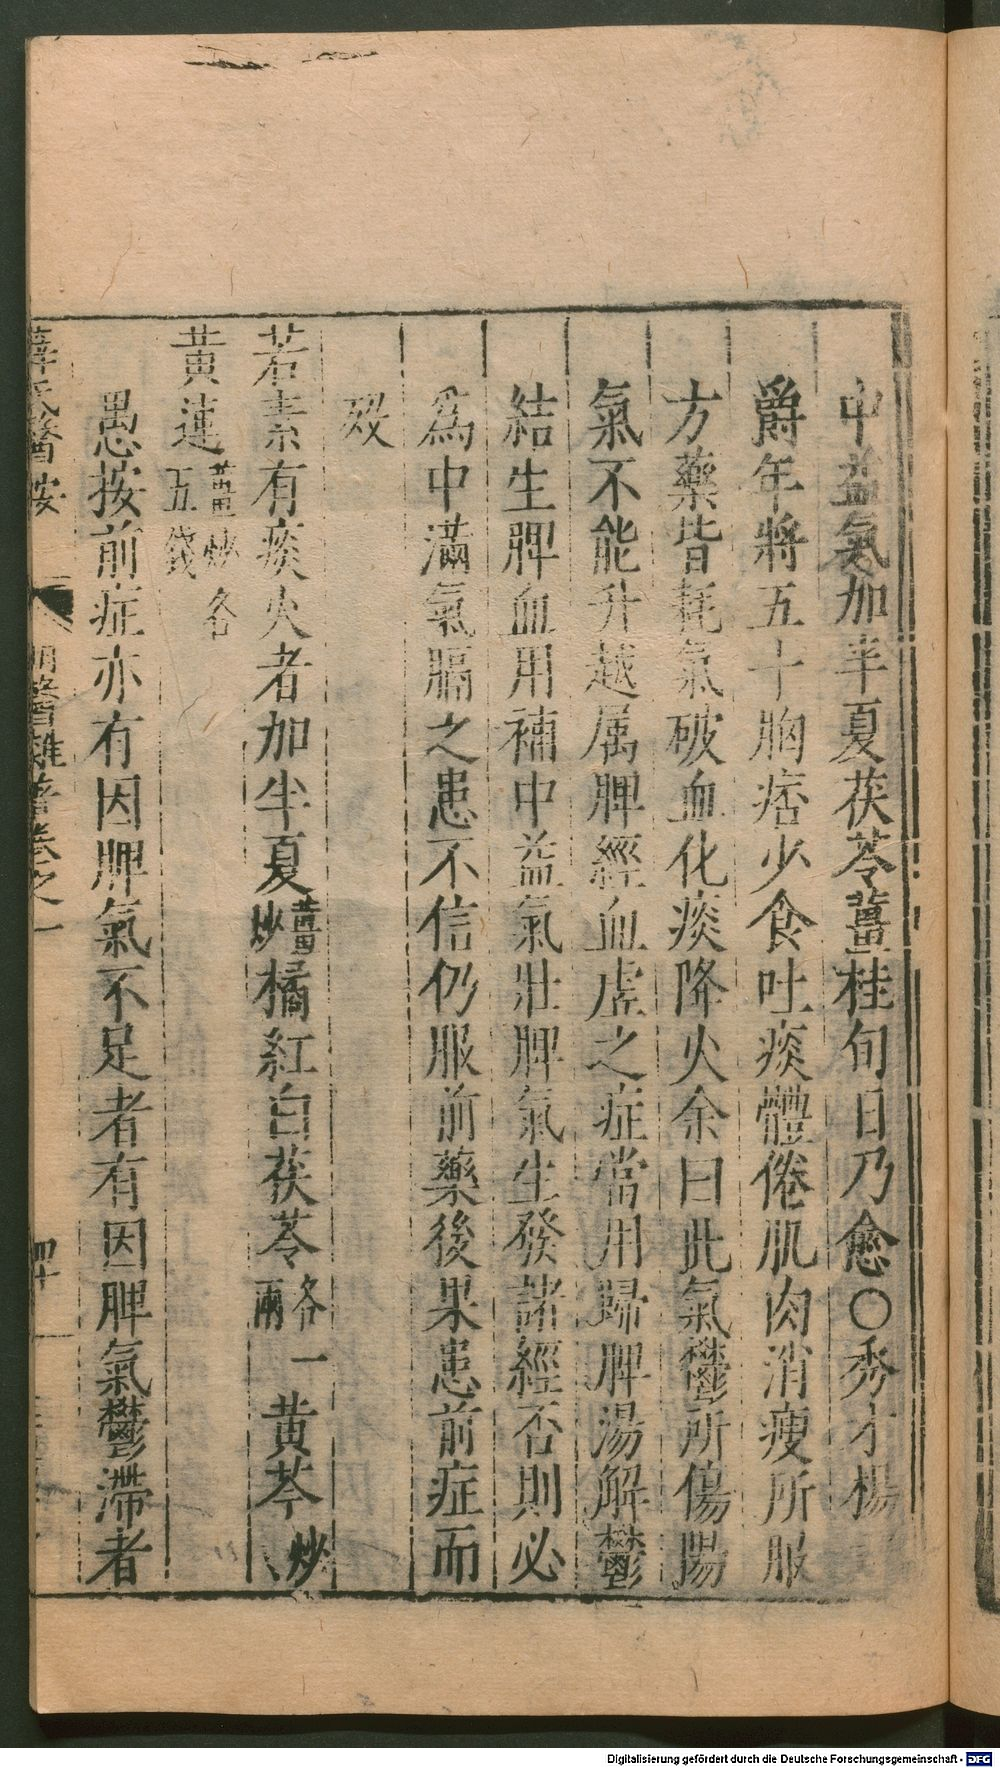 中益氣加半夏茯苓薑桂旬日乃愈〇秀才楊
爵年將五十胸痞少食吐痰體倦肌肉消瘦所服
方藥皆耗氣破血化痰降火余曰此氣鬱所傷陽
氣不能升越属脾經血虛之症當用歸脾湯解鬱
結生脾血用補中益氣壯脾氣生發諸經否則必
為中滿氣膈之患不信仍服前藥後果患前症而
歿
若素有痰火者加半夏薑炒橘紅白茯苓各一兩黄芩炒
黄連薑炒各五錢
愚按前症亦有因脾氣不足者有因脾氣鬱滯者
薛氏醫按 明醫雜著卷之一 四十
Digitalisierung gefördert durch die Deutsche Forschungsgemeinschaft - DFG